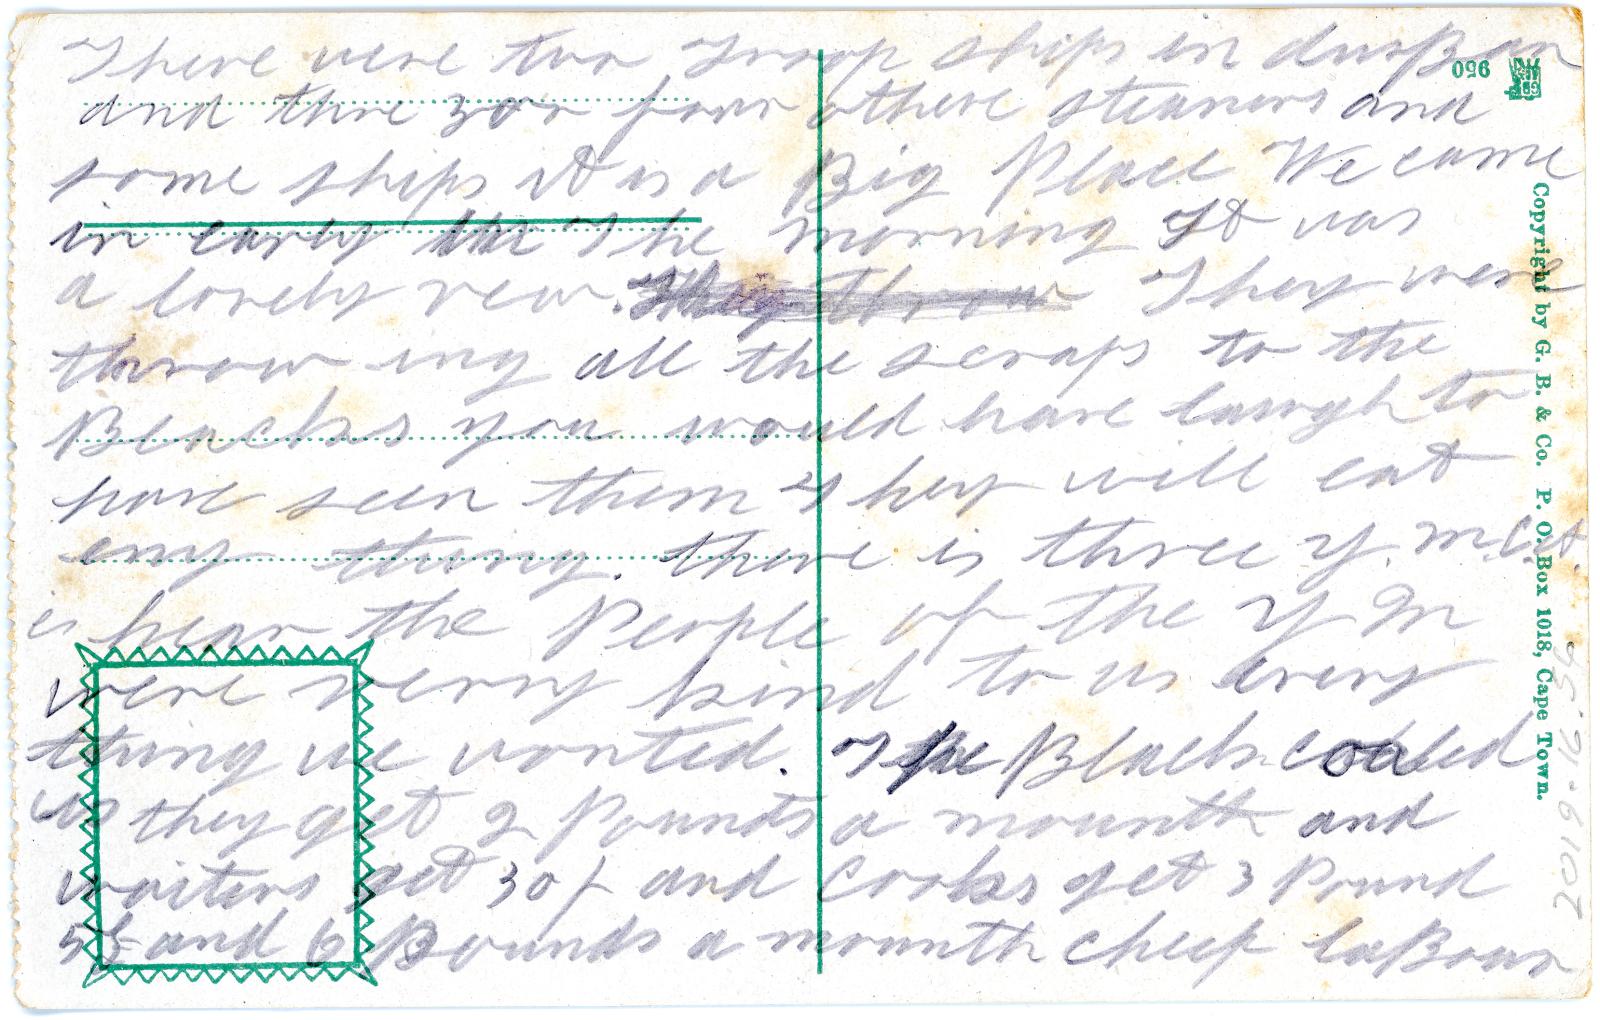 There were two Troop ships in durBan
and thre 3 or four othere steamers and
some ships it is a Big Place We came
in early the morning It was
a lovely vew. They were
throw ing all the scraps to the
Blacks you would have laugh to
have seen them They will eat
eny thing. there is three Y. M. C. A.
is hear the People of the Y M
were verry kind to us every
thing we wonted. The Blacks coaled
us they get 2 Pounds a mounth and
waiters get 30/ and Cooks get 3 Pound
5/ and 6 Pounds a mounth cheep laBour
950
Copyright by G. B. & Co. P. O. Box 1018, Cape Town.
2019.16.54